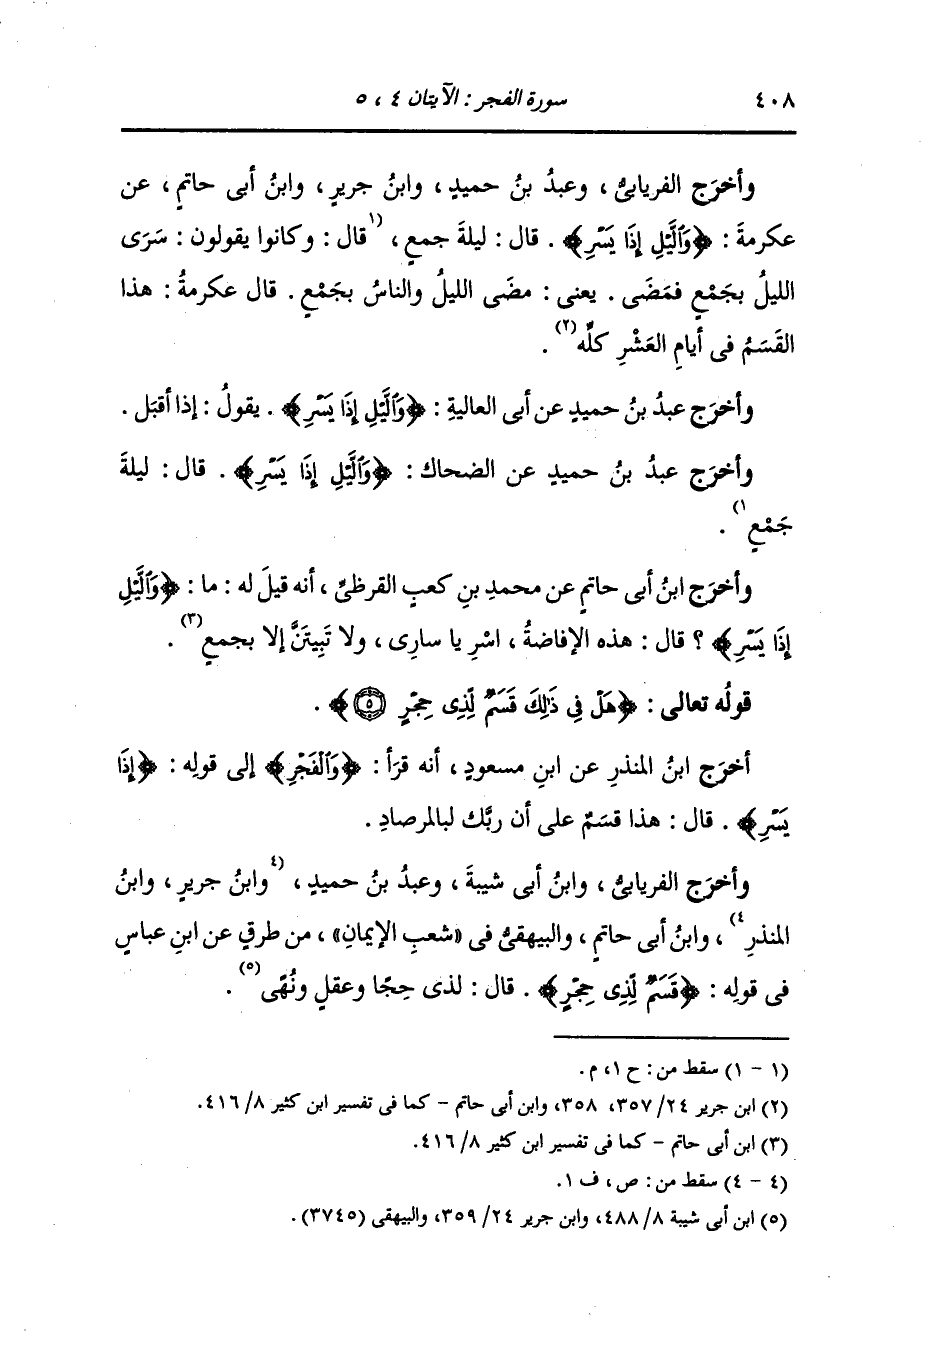 ٤٠٨ سورة الفجر : الآيتان ٤ ، ٥
وأخرَج الفريابىُّ ، وعبدُ بنُ حميدٍ ، وابنُ جريرٍ ، وابنُ أبى حاتمٍ ، عن
عكرمةَ : ﴿وَٱلَّيْلِ إِذَا يَسْرِ﴾ . قال : ليلةَ جمعٍ ، (١قال : وكانوا يقولون : سَرَى
الليلُ بجَمْعٍ فمَضَى . يعنى : مضَى الليلُ والناسُ بجَمْعٍ . قال عكرمةُ : هذا
القَسَمُ فى أيامِ العَشْرِ كلِّه(٢) .
وأخرَج عبدُ بنُ حميدٍ عن أبى العاليةِ : ﴿وَٱلَّيْلِ إِذَا يَسْرِ﴾ . يقولُ : إذا أقبَل .
وأخرَج عبدُ بنُ حميدٍ عن الضحاك : ﴿وَٱلَّيْلِ إِذَا يَسْرِ﴾ . قال : ليلةَ
جَمْعٍ١) .
وأخرَج ابنُ أبى حاتمٍ عن محمدِ بنِ كعبٍ القرظىِّ ، أنه قيلَ له : ما : ﴿وَٱلَّيْلِ
إِذَا يَسْرِ﴾ ؟ قال : هذه الإفاضةُ ، اسْرِ يا سارِى ، ولا تَبِيتَنَّ إلا بجمعٍ(٣) .
قولُه تعالى : ﴿هَلْ فِى ذَٰلِكَ قَسَمٌ لِّذِى حِجْرٍ ٥﴾ .
أخرَج ابنُ المنذرِ عن ابنِ مسعودٍ ، أنه قرَأ : ﴿وَٱلْفَجْرِ﴾ إلى قولِه : ﴿إِذَا
يَسْرِ﴾ . قال : هذا قسَمٌ على أن ربَّك لبالمرصادِ .
وأخرَج الفريابىُّ ، وابنُ أبى شيبةَ ، وعبدُ بنُ حميدٍ ، (٤وابنُ جريرٍ ، وابنُ
المنذرِ٤) ، وابنُ أبى حاتمٍ ، والبيهقىُّ فى «شعبِ الإيمانِ» ، من طرقٍ عن ابنِ عباسٍ
فى قولِه : ﴿قَسَمٌ لِّذِى حِجْرٍ﴾ . قال : لذى حِجًا وعقلٍ ونُهًى(٥) .
(١ - ١) سقط من : ح ١، م .
(٢) ابن جرير ٢٤/ ٣٥٧، ٣٥٨، وابن أبى حاتم - كما فى تفسير ابن كثير ٨/ ٤١٦.
(٣) ابن أبى حاتم - كما فى تفسير ابن كثير ٨/ ٤١٦.
(٤ - ٤) سقط من : ص ، ف ١.
(٥) ابن أبى شيبة ٨/ ٤٨٨، وابن جرير ٢٤/ ٣٥٩، والبيهقى (٣٧٤٥).